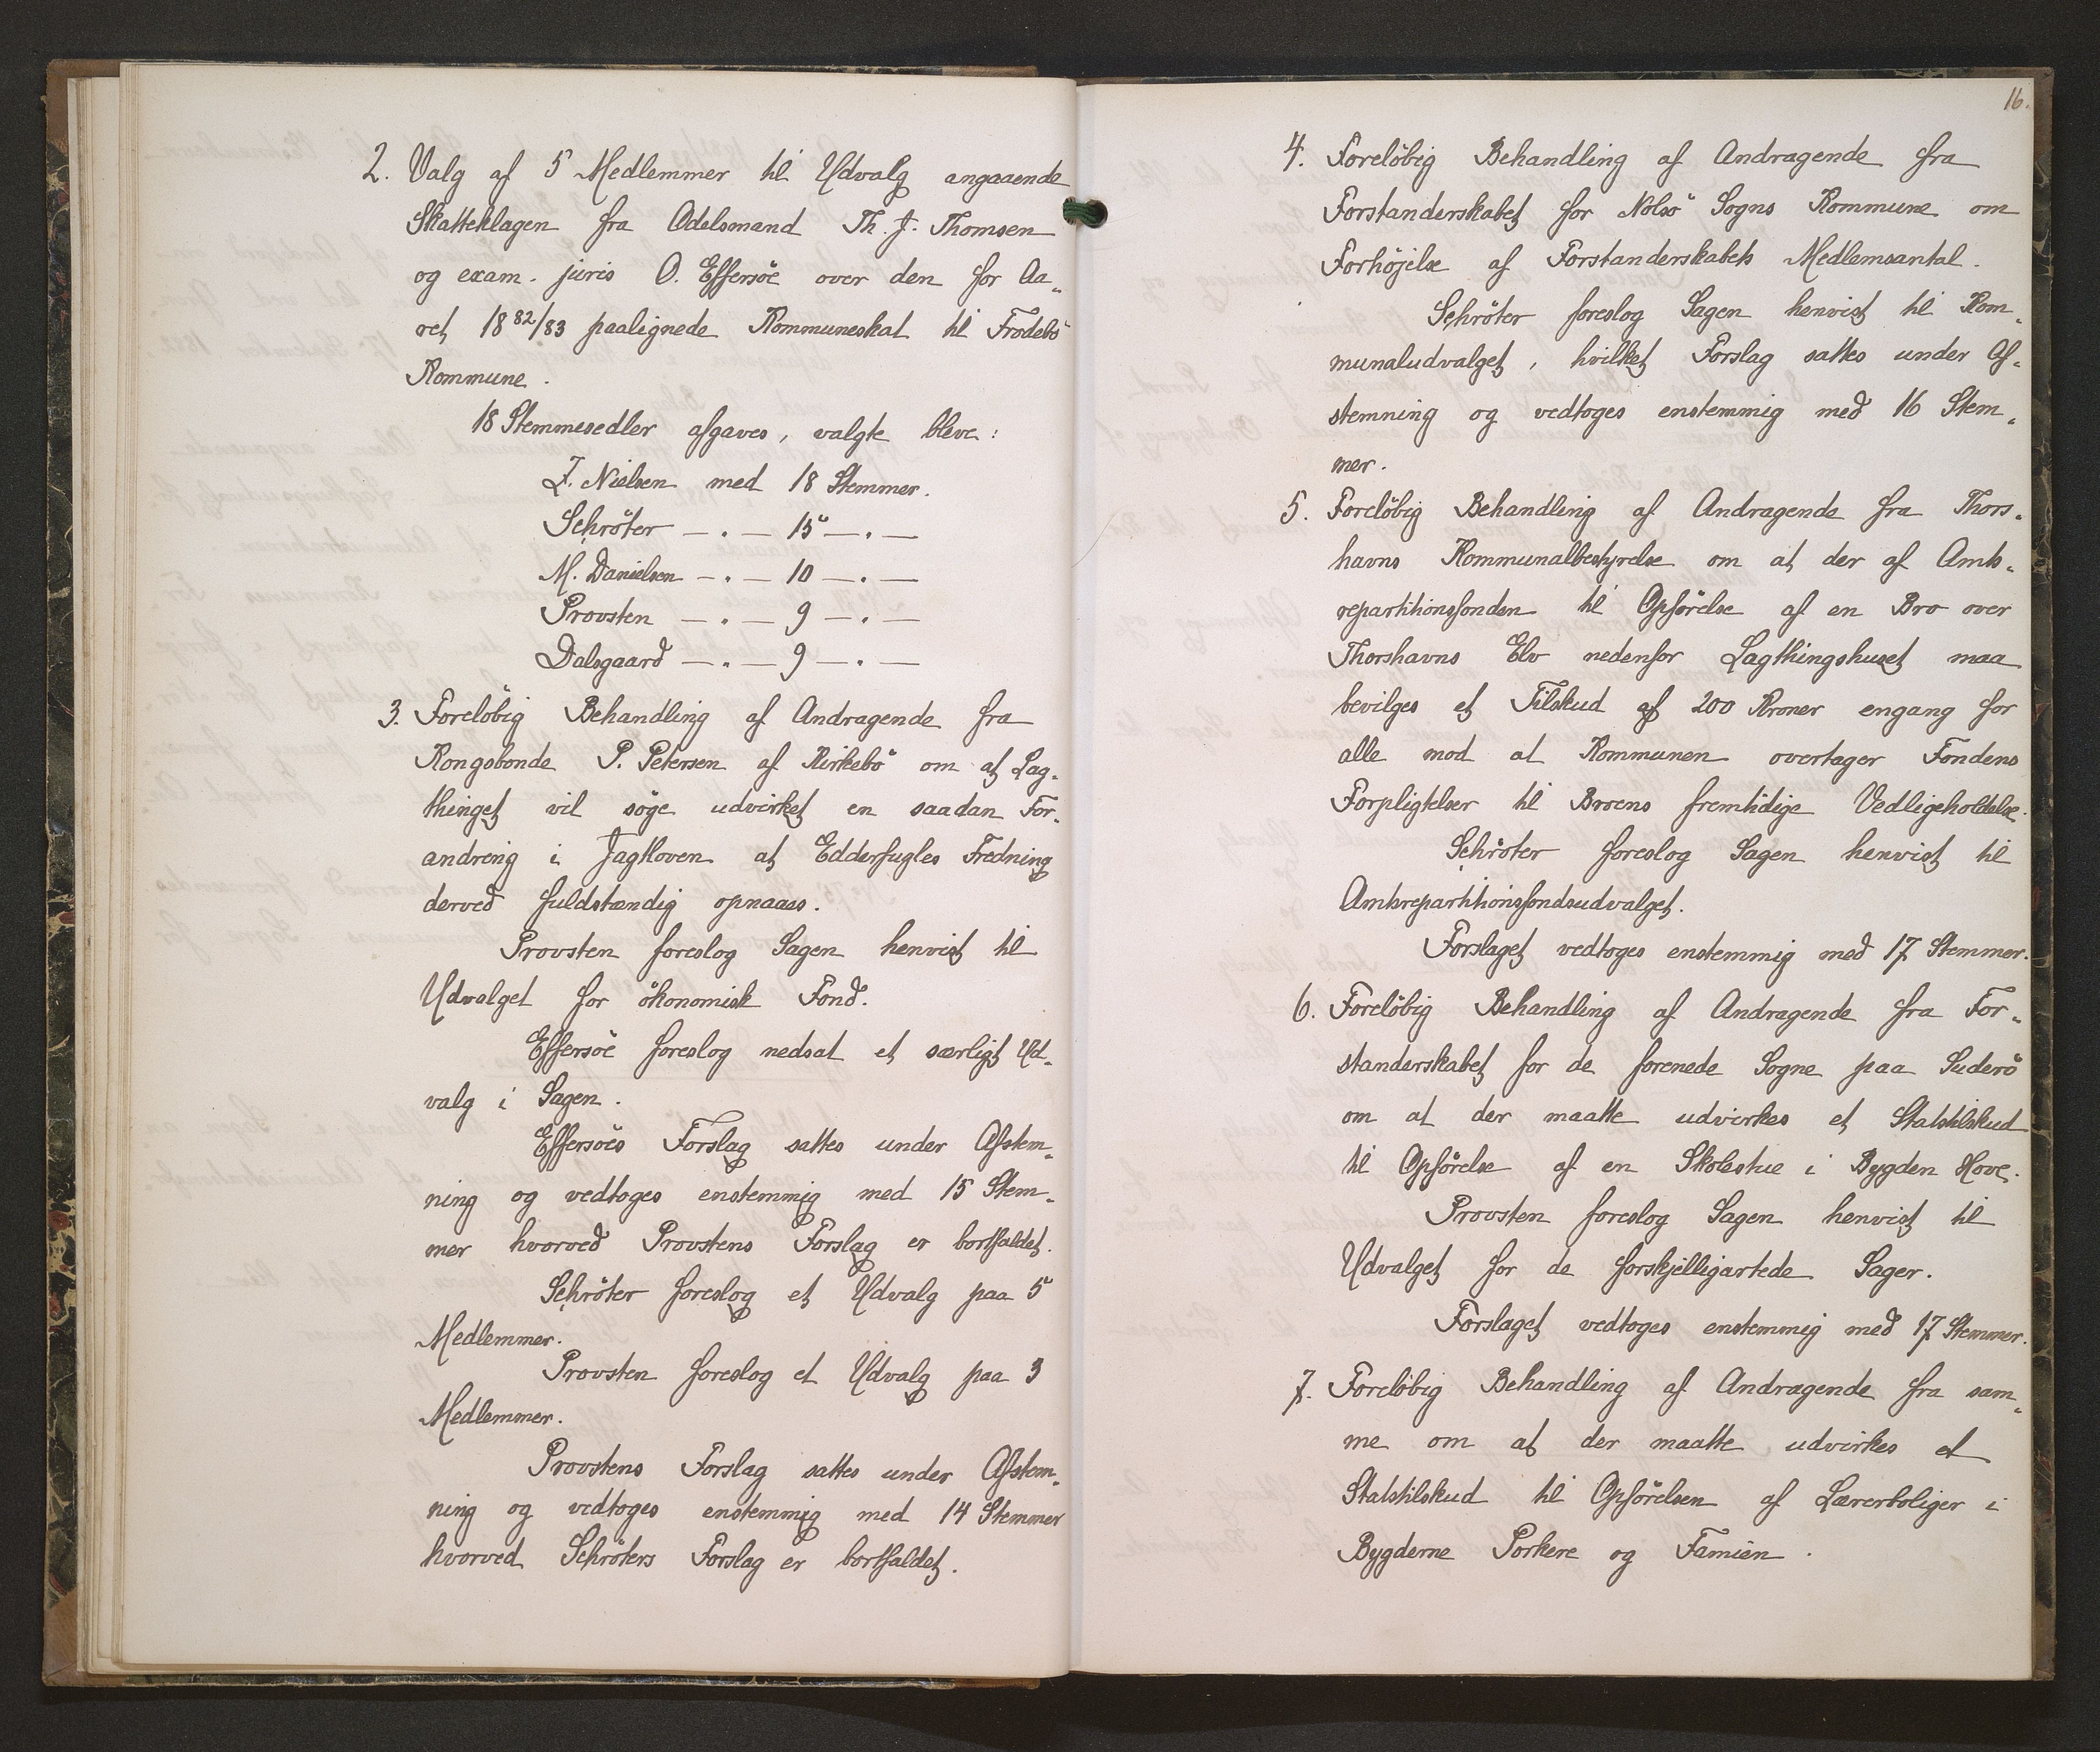 2. Valg af 5 Medlemmer til Udvalg angaaende
Skatteklagen fra Odelsmand Th. J. Thomsen
og exam. juris O. Effersöe over den for Aa„
ret 1882/83 paalignede Kommuneskat til Frodebö
Kommune.
18 Stemmesedler afgaves, valgte bleve:
J. Nielsen med 18 Stemmer.
Schröter —„— 15 —„—
M. Danielsen —„— 10 —„—
Provsten —„— 9 —„—
Dalsgaard —„— 9 —„—
3. Forelöbig Behandling af Andragende fra
Kongsbonde P. Petersen af Kirkebö om at Lag„
thinget vil söge udvirket en saadan For„
andring i Jagtloven at Edderfugles Fredning
derved fuldstændig opnaaes.
Provsten foreslog Sagen henvist til
Udvalget for ökonomisk Fond.
Effersöe foreslog nedsat et særligt Ud„
valg i Sagen.
Effersöes Forslag sattes under Afstem„
ning og vedtoges enstemmig med 15 Stem„
mer hvorved Provstens Forslag er bortfaldet.
Schröter foreslog et Udvalg paa 5
Medlemmer.
Provsten foreslog et Udvalg paa 3
Medlemmer.
Provstens Forslag sattes under Afstem„
ning og vedtoges enstemmig med 14 Stemmer
hvorved Schröters Forslag er bortfaldet.
16.
4. Forelöbig Behandling af Andragende fra
Forstanderskabet for Nolsö Sogns Kommune om
Forhöjelse af Forstanderskabets Medlemsantal.
Schröter foreslog Sagen henvist til Kom„
munaludvalget, hvilket Forslag sattes under Af„
stemning og vedtoges enstemmig med 16 Stem„
mer.
5. Forelöbig Behandling af Andragende fra Thors„
havns Kommunalbestyrelse om at der af Amts„
repartitionsfonden til Opförelse af en Bro over
Thorshavns Elv nedenfor Lagthingshuset maa
bevilges et Tilskud af 200 Kroner engang for
alle mod at Kommunen overtager Fondens
Forpligtelser til Broens fremtidige Vedligeholdelse.
Schröter foreslog Sagen henvist til
Amtsrepartitionsfondsudvalget.
Forslaget vedtoges enstemmig med 17 Stemmer.
6. Forelöbig Behandling af Andragende fra For„
standerskabet for de forenede Sogne paa Suderö
om at der maatte udvirkes et Statstilskud
til Opförelse af en Skolestue i Bygden Hove.
Provsten foreslog Sagen henvist til
Udvalget for de forskjelligartede Sager.
Forslaget vedtoges enstemmig med 17 Stemmer.
7. Forelöbig Behandling af Andragende fra sam„
me om at der maatte udvirkes et
Statstilskud til Opförelsen af Lærerboliger i
Bygderne Porkere og Famien.